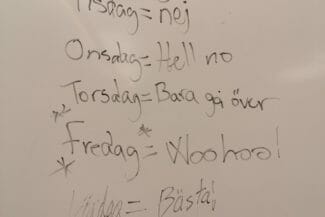 Tisdag = nej
Onsdag = Hell no
Torsdag = Bara gå över
Fredag = Woohoo!
Lördag = Bästa!